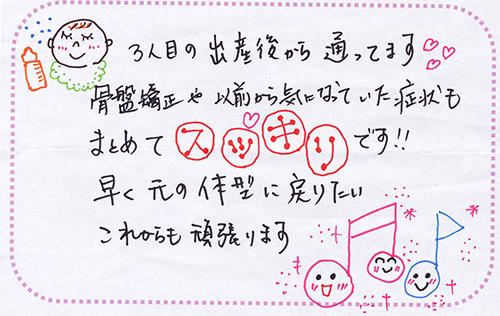 3人目の出産後から通ってます
骨盤矯正や以前から気になっていた症状も
まとめてスッキリです!!
早く元の体型に戻りたい
これからも頑張ります